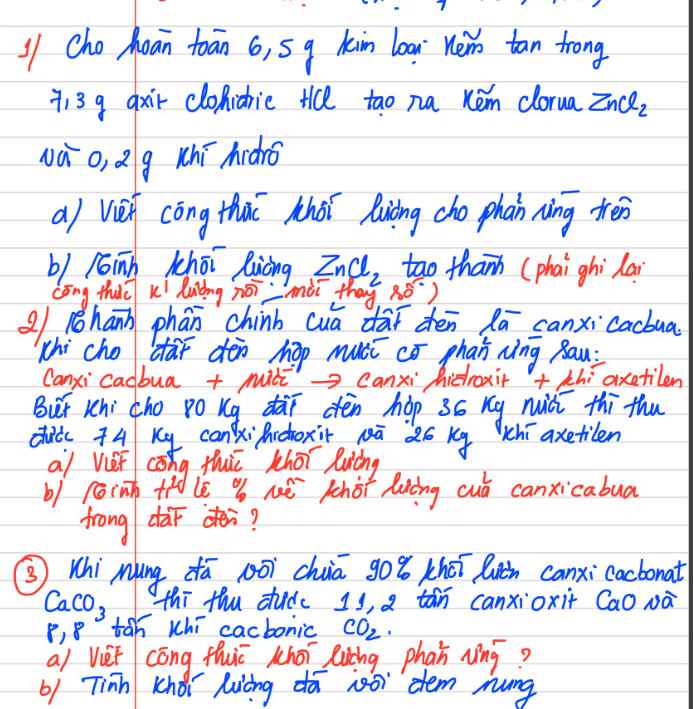 1/ Cho hoàn toàn 6,5 g kim loại kẽm tan trong
7,3 g axit clohidric HCl tạo ra kẽm clorua ZnCl₂
và 0,2 g khí hidrô
a) Viết công thức khối lượng cho phản ứng trên
b) Tính khối lượng ZnCl₂ tạo thành (phải ghi lại
công thức k' lượng rồi mới thay số)
2) Thành phần chính của đất đèn là canxi cacbua
khi cho đất đèn hợp nước có phản ứng sau:
Canxi cacbua + nước → canxi hidroxit + khí axetilen
Biết khi cho 80 kg đất đèn hợp 36 kg nước thì thu
được 74 kg canxi hidroxit và 26 kg khí axetilen
a/ Viết công thức khối lượng
b/ Tính tỉ lệ % về khối lượng của canxicabua
trong đất đèn?
3 Khi nung đá vôi chứa 90% khối lượn canxi cacbonat
CaCO₃ thì thu được 11,2 tấn canxi oxit CaO và
8,8 tấn khí cacbonic CO₂.
a/ Viết công thức khối lượng phản ứng?
b/ Tính khối lượng đá vôi đem nung